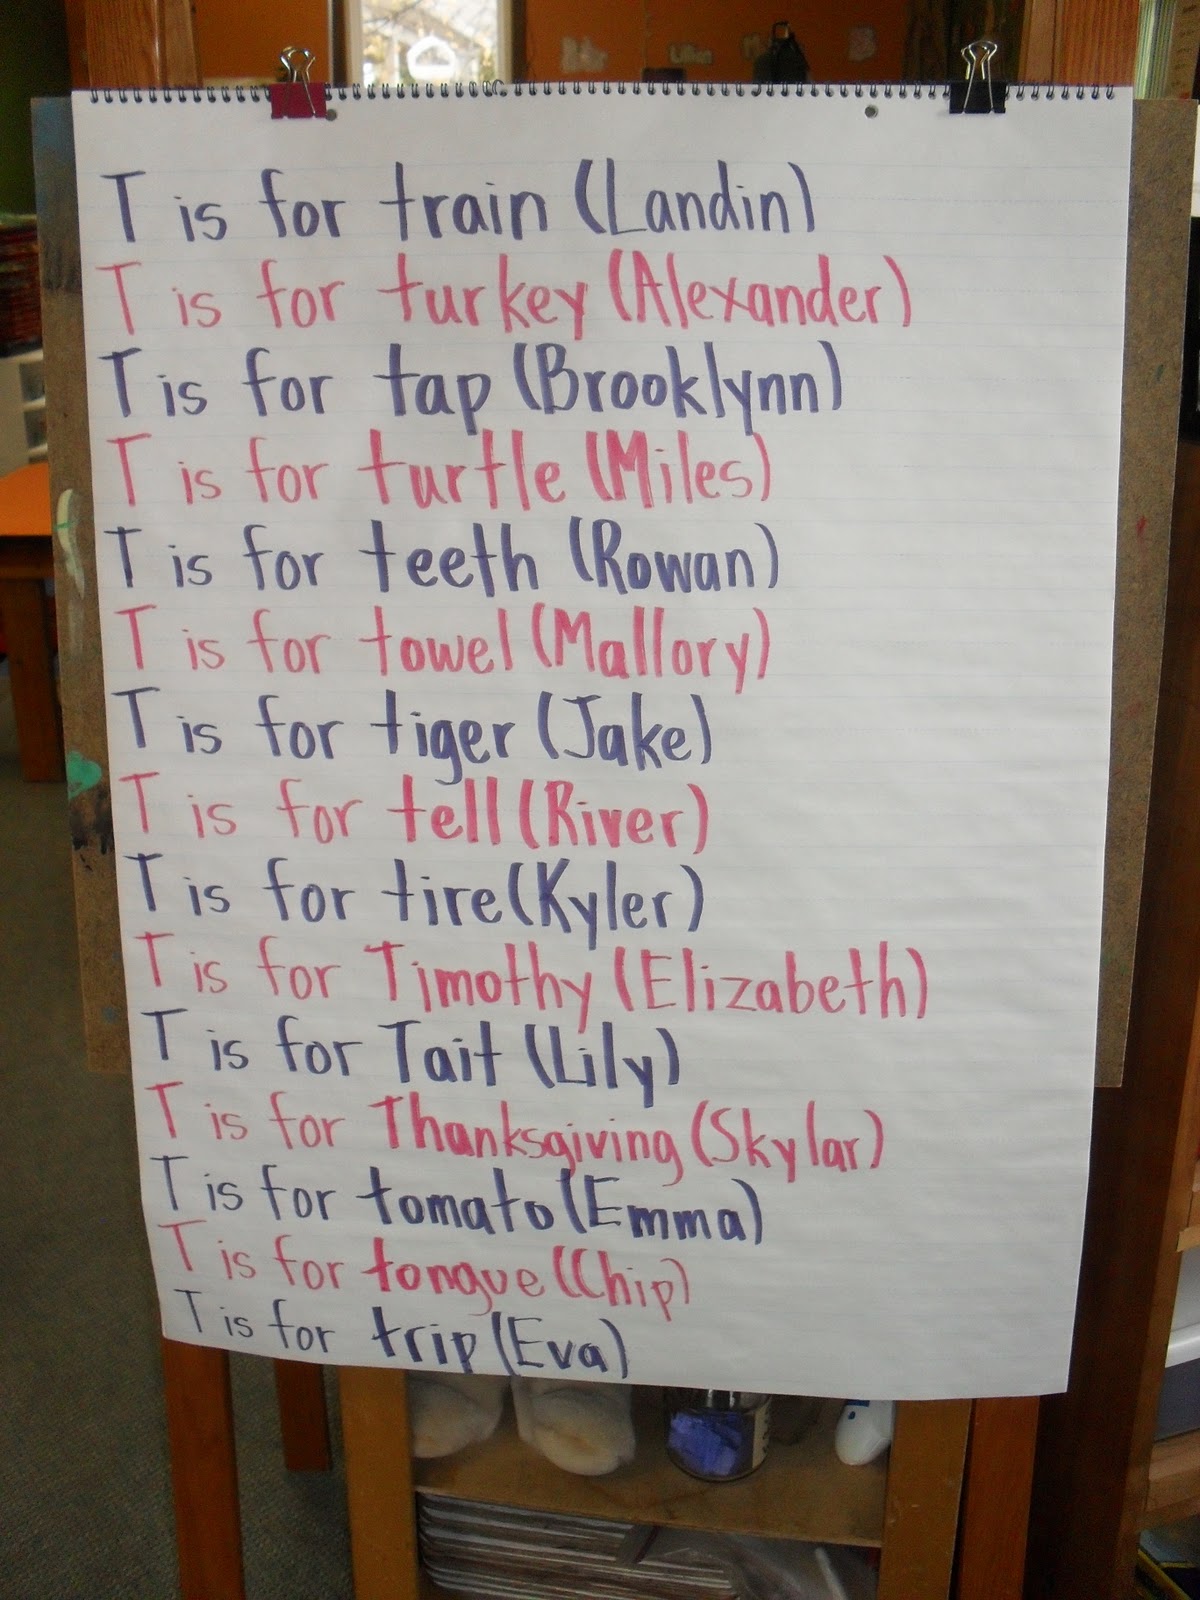 T is for train (Landin)
T is for turkey (Alexander)
T is for tap (Brooklynn)
T is for turtle (Miles)
T is for teeth (Rowan)
T is for towel (Mallory)
T is for tiger (Jake)
T is for tell (River)
T is for tire (Kyler)
T is for Timothy (Elizabeth)
T is for Tait (Lily)
T is for Thanksgiving (Skylar)
T is for tomato (Emma)
T is for tongue (Chip)
T is for trip (Eva)